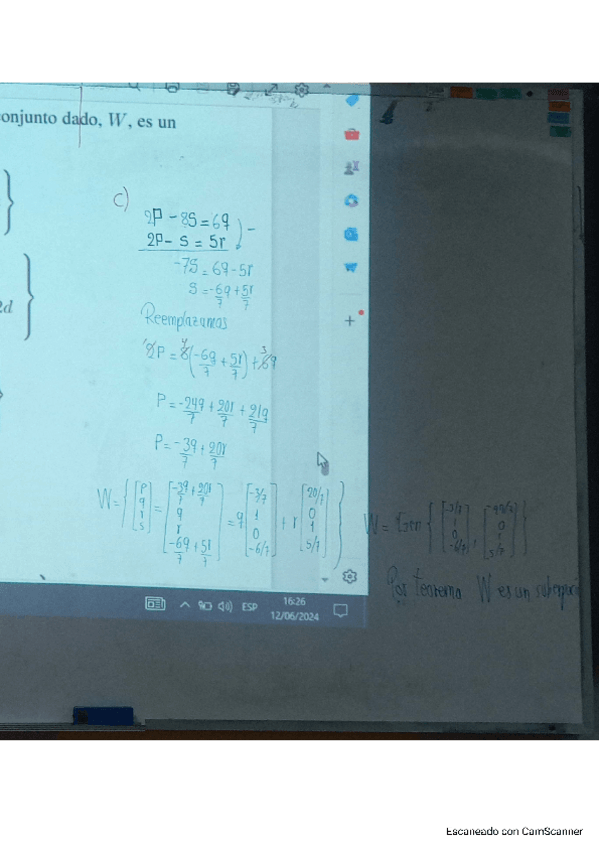 onjunto dado, W, es un
c)
2P - 8S = 6q
2P - S = 5r
-7S = 6q - 5r
S = -6q/7 + 5r/7
2d
Reemplazamos
2P = 8(-6q/7 + 5r/7) + 6q
P = -24q/7 + 20r/7 + 21q/7
P = -3q/7 + 20r/7
W = { [P q r s] = [-3q/7 + 20r/7 q r -6q/7 + 5r/7] = q [-3/7 1 0 -6/7] + r [20/7 0 1 5/7] }
W = Gen { [-3/7 1 0 -6/7], [ 0 1 5/7] }
Por teorema W es un
ESP
16:26
12/06/2024
Escaneado con CamScanner